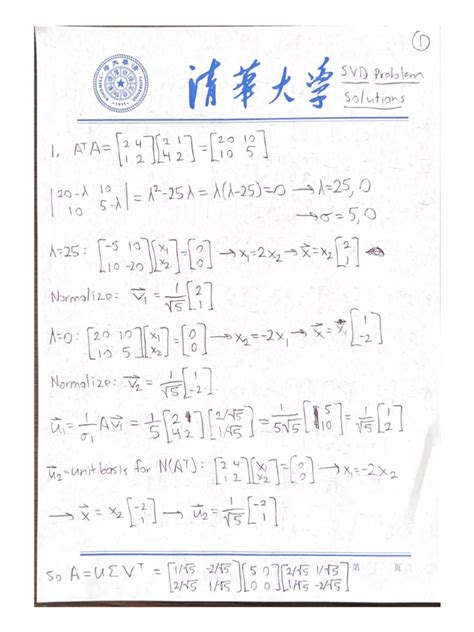 ①
清華大学
SVD Problem
Solutions
1. AᵀA = [2 4; 1 2][2 1; 4 2] = [20 10; 10 5]
|20-λ 10; 10 5-λ| = λ²-25λ = λ(λ-25)=0 → λ=25, 0
→ σ = 5, 0
λ=25: [-5 10; 10 -20][x₁; x₂] = [0; 0] → x₁=2x₂ → x⃗ = x₂[2; 1]
Normalize: v⃗₁ = 1/√5 [2; 1]
λ=0: [20 10; 10 5][x₁; x₂] = [0; 0] → x₂=-2x₁ → x⃗ = x₁[1; -2]
Normalize: v⃗₂ = 1/√5 [1; -2]
u⃗₁ = 1/σ₁ Av⃗₁ = 1/5 [2 1; 4 2][2/√5; 1/√5] = 1/5√5 [5; 10] = 1/√5 [1; 2]
u⃗₂ = unit basis for N(Aᵀ): [2 4; 1 2][x₁; x₂] = [0; 0] → x₁=-2x₂
→ x⃗ = x₂[-2; 1] → u⃗₂ = 1/√5 [-2; 1]
第 頁
So A = UΣVᵀ = [1/√5 -2/√5; 2/√5 1/√5][5 0; 0 0][2/√5 1/√5; 1/√5 -2/√5]